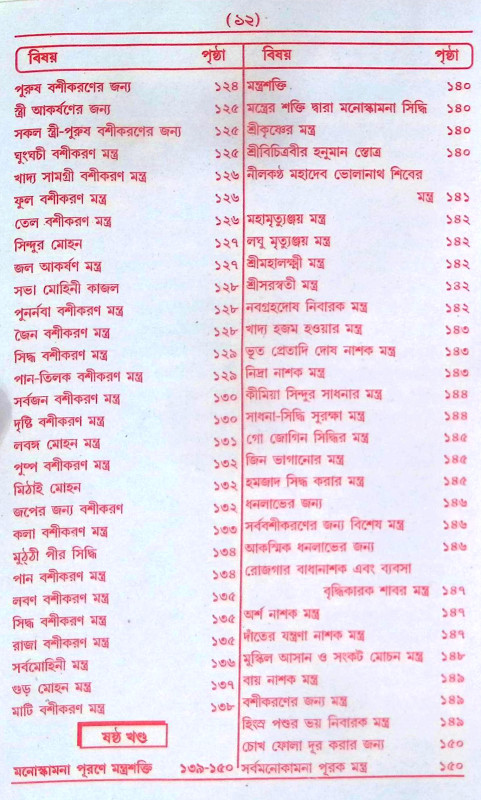 (১২)
বিষয় পৃষ্ঠা
পুরুষ বশীকরণের জন্য ১২৪
স্ত্রী আকর্ষণের জন্য ১২৫
সকল স্ত্রী-পুরুষ বশীকরণের জন্য ১২৫
ঘুংঘচী বশীকরণ মন্ত্র ১২৫
খাদ্য সামগ্রী বশীকরণ মন্ত্র ১২৬
ফুল বশীকরণ মন্ত্র ১২৬
তেল বশীকরণ মন্ত্র ১২৬
সিন্দুর মোহন ১২৭
জল আকর্ষণ মন্ত্র ১২৭
সভা মোহিনী কাজল ১২৮
পুনর্নবা বশীকরণ মন্ত্র ১২৮
জৈন বশীকরণ মন্ত্র ১২৮
সিদ্ধ বশীকরণ মন্ত্র ১২৯
পান-তিলক বশীকরণ মন্ত্র ১২৯
সর্বজন বশীকরণ মন্ত্র ১৩০
দৃষ্টি বশীকরণ মন্ত্র ১৩০
লবঙ্গ মোহন মন্ত্র ১৩১
পুষ্প বশীকরণ মন্ত্র ১৩২
মিঠাই মোহন ১৩২
জপের জন্য বশীকরণ ১৩২
কলা বশীকরণ মন্ত্র ১৩৩
মুঠ্ঠী পীর সিদ্ধি ১৩৪
পান বশীকরণ মন্ত্র ১৩৪
লবণ বশীকরণ মন্ত্র ১৩৫
সিদ্ধ বশীকরণ মন্ত্র ১৩৫
রাজা বশীকরণ মন্ত্র ১৩৫
সর্বমোহিনী মন্ত্র ১৩৬
গুড় মোহন মন্ত্র ১৩৭
মাটি বশীকরণ মন্ত্র ১৩৮
ষষ্ঠ খণ্ড
মনোস্কামনা পূরণে মন্ত্রশক্তি ১৩৯-১৫০
বিষয় পৃষ্ঠা
মন্ত্রশক্তি ১৪০
মন্ত্রের শক্তি দ্বারা মনোস্কামনা সিদ্ধি ১৪০
শ্রীকৃষ্ণের মন্ত্র ১৪০
শ্রীবিচিত্রবীর হনুমান স্তোত্র ১৪০
নীলকণ্ঠ মহাদেব ভোলানাথ শিবের
মন্ত্র ১৪১
মহামৃত্যুঞ্জয় মন্ত্র ১৪২
লঘু মৃত্যুঞ্জয় মন্ত্র ১৪২
শ্রীমহালক্ষ্মী মন্ত্র ১৪২
শ্রীসরস্বতী মন্ত্র ১৪২
নবগ্রহদোষ নিবারক মন্ত্র ১৪২
খাদ্য হজম হওয়ার মন্ত্র ১৪৩
ভূত প্রেতাদি দোষ নাশক মন্ত্র ১৪৩
নিদ্রা নাশক মন্ত্র ১৪৩
কীমিয়া সিন্দুর সাধনার মন্ত্র ১৪৪
সাধনা-সিদ্ধি সুরক্ষা মন্ত্র ১৪৪
গো জোগিন সিদ্ধির মন্ত্র ১৪৫
জিন ভাগানোর মন্ত্র ১৪৫
হমজাদ সিদ্ধ করার মন্ত্র ১৪৫
ধনলাভের জন্য ১৪৬
সর্ববশীকরণের জন্য বিশেষ মন্ত্র ১৪৬
আকস্মিক ধনলাভের জন্য ১৪৬
রোজগার বাধানাশক এবং ব্যবসা
বৃদ্ধিকারক শাবর মন্ত্র ১৪৭
অর্শ নাশক মন্ত্র ১৪৭
দাঁতের যন্ত্রণা নাশক মন্ত্র ১৪৭
মুস্কিল আসান ও সংকট মোচন মন্ত্র ১৪৮
বায় নাশক মন্ত্র ১৪৯
বশীকরণের জন্য মন্ত্র ১৪৯
হিংস্র পশুর ভয় নিবারক মন্ত্র ১৪৯
চোখ ফোলা দূর করার জন্য ১৫০
সর্বমনোকামনা পূরক মন্ত্র ১৫০